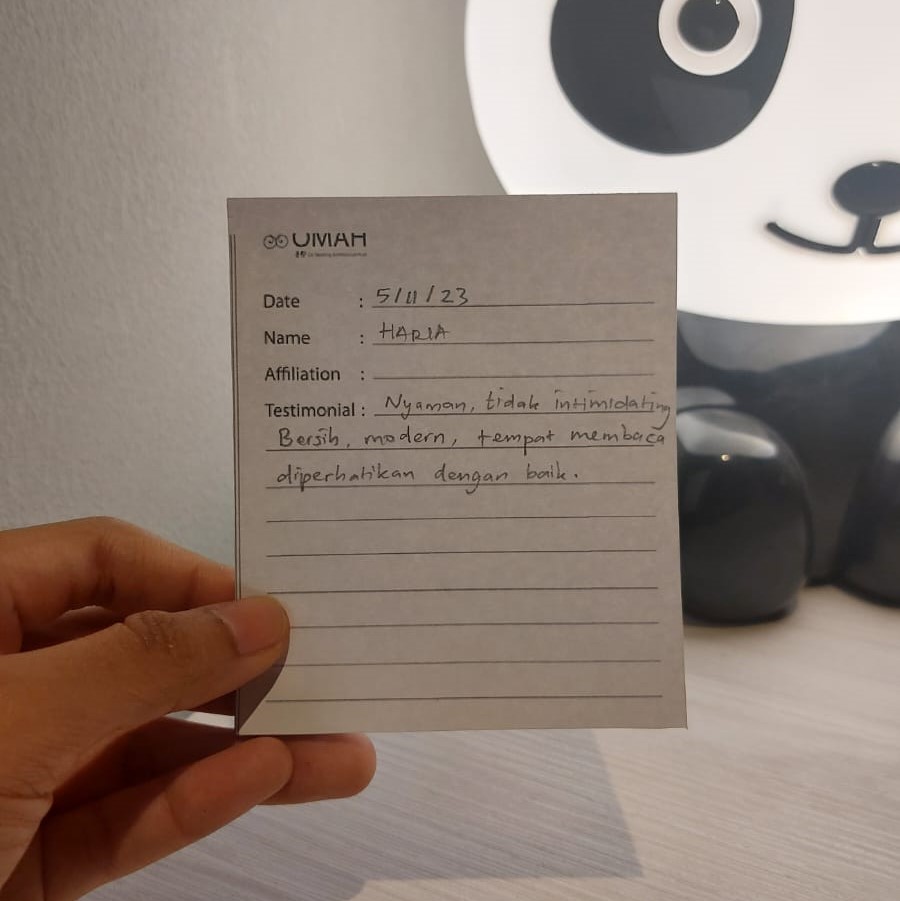 UMAH
Date : 5/11/23
Name : HARIA
Affiliation :
Testimonial : Nyaman, tidak intimidating
Bersih, modern, tempat membaca
diperhatikan dengan baik.